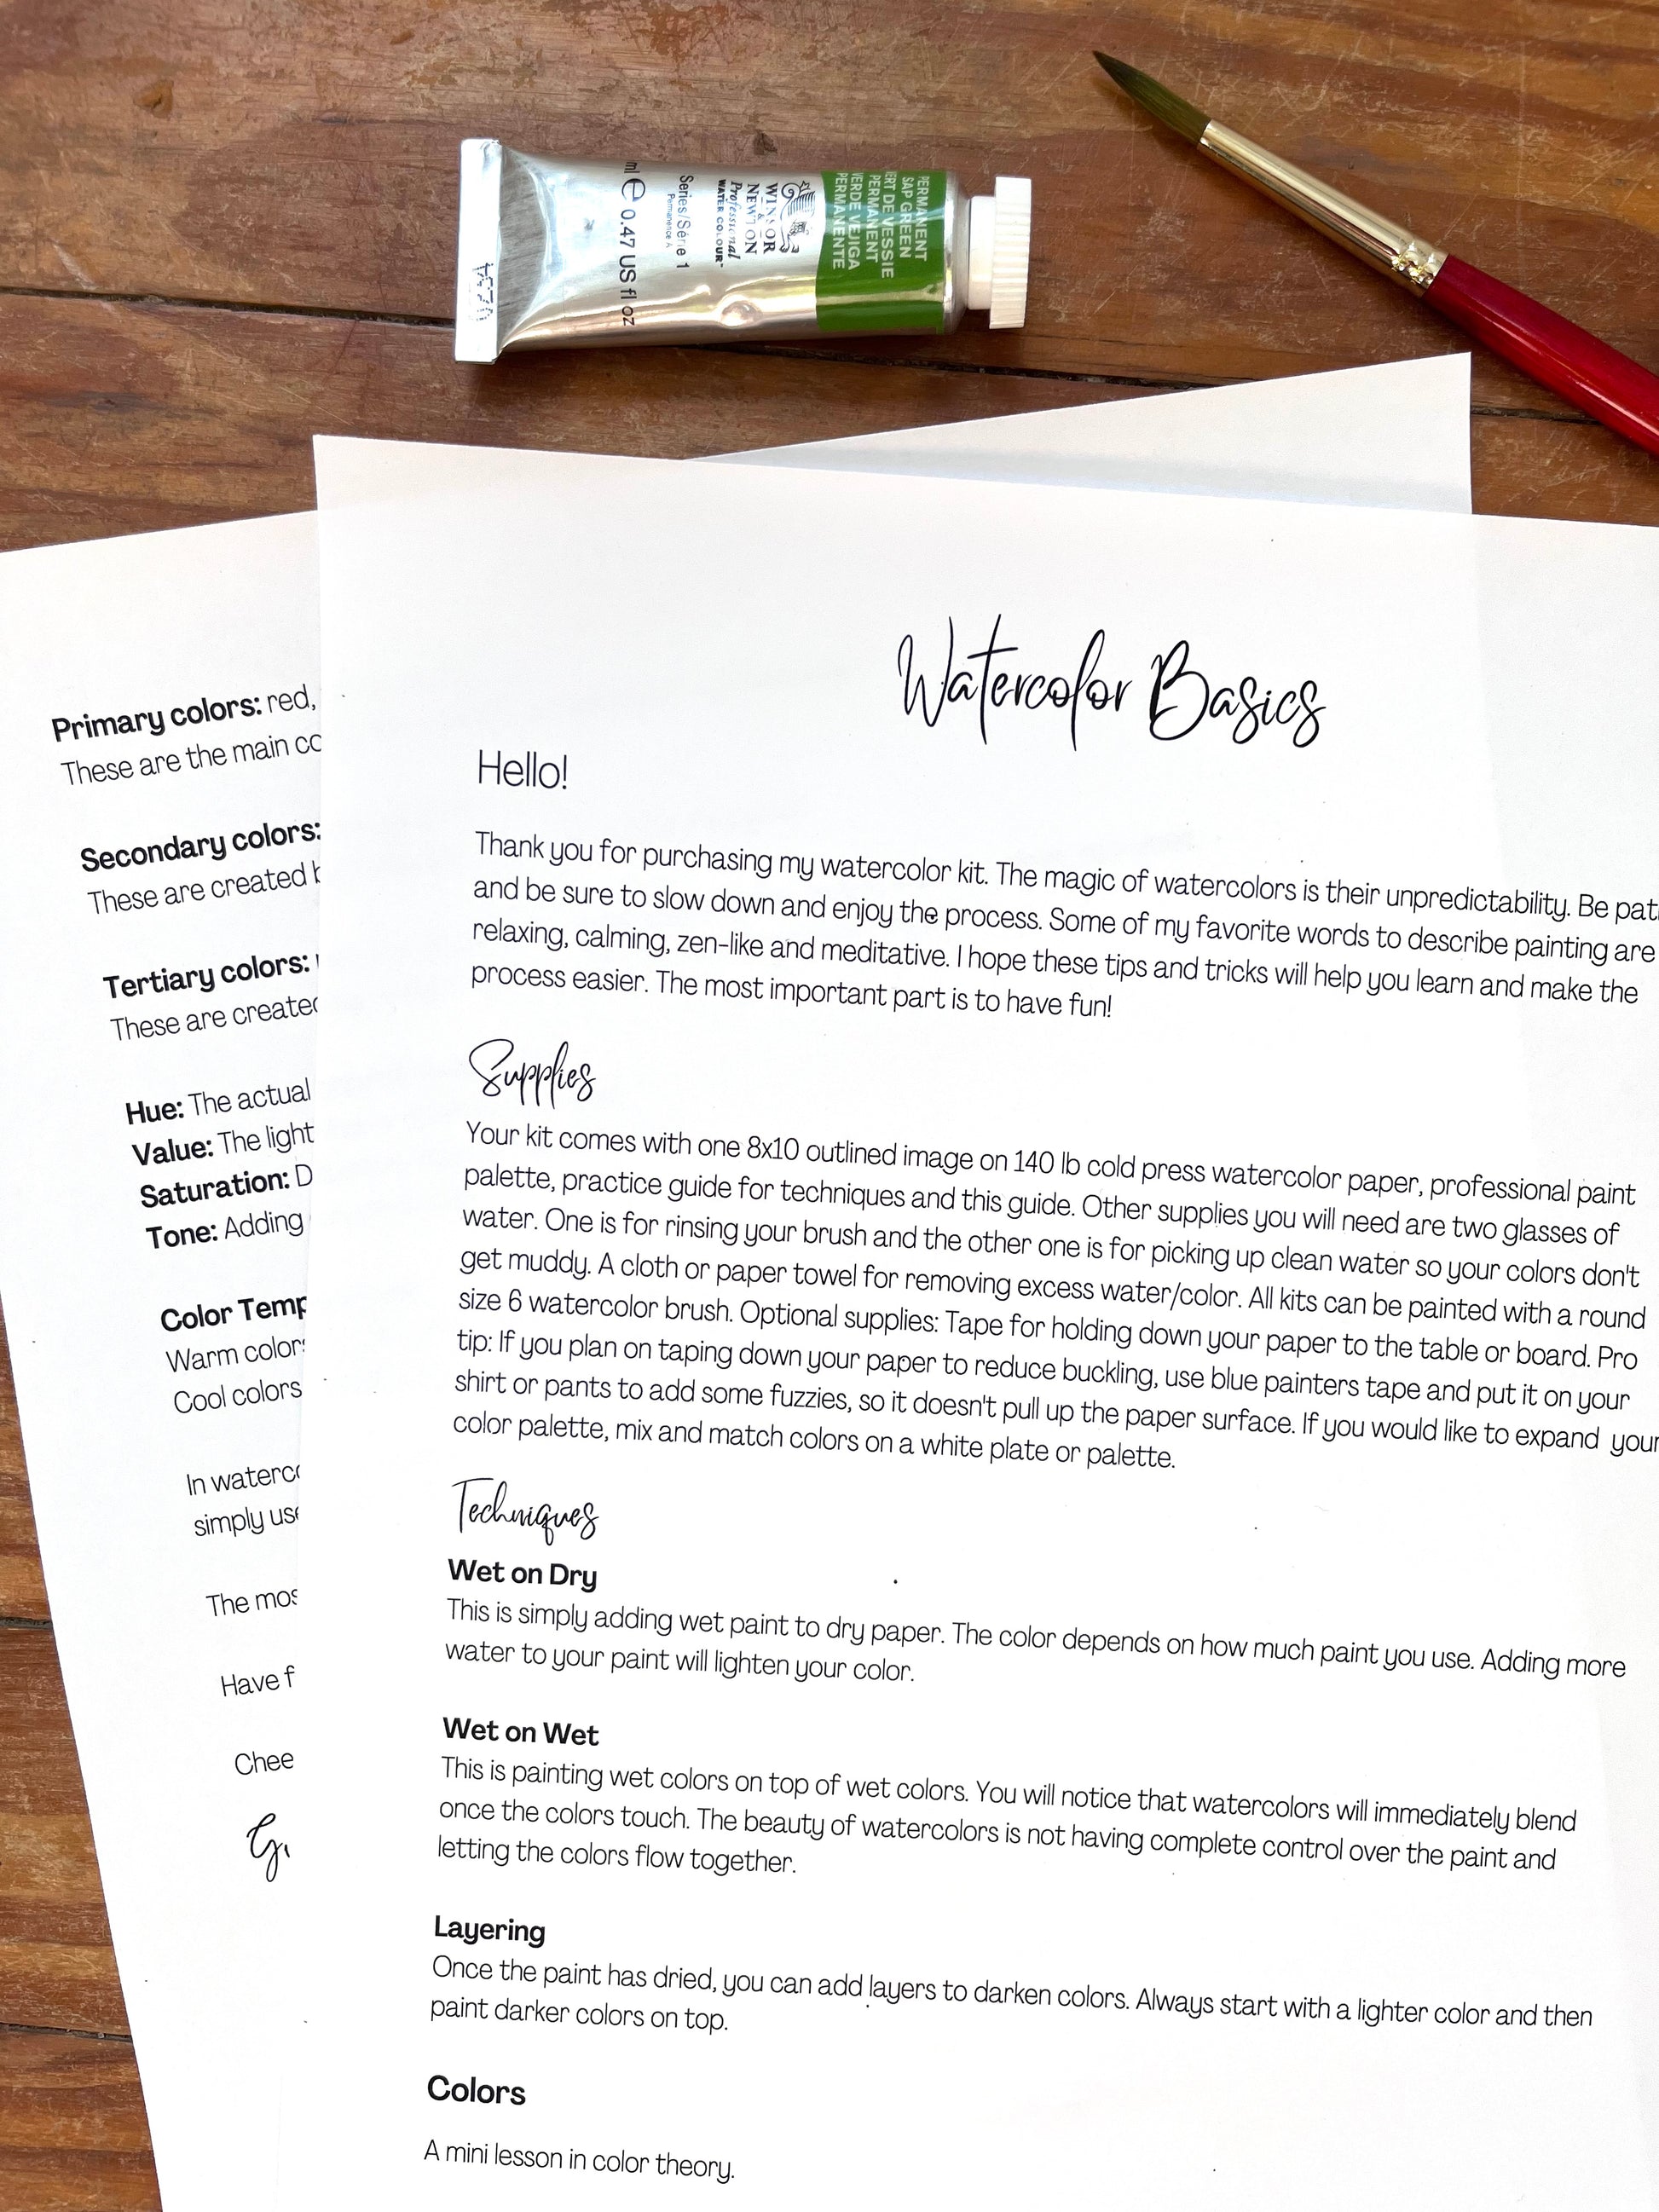 PERMANENT
SAP GREEN
VERT DE VESSIE
PERMANENT
VERDE VEJIGA
PERMANENTE
WINSOR
&
NEWTON
Professional
WATER COLOUR
Series/Série 1
Permanence A
ml e 0.47 US fl oz
Primary colors: red,
These are the main
Secondary colors:
These are created
Tertiary colors:
These are created
Hue: The actual
Value: The light
Saturation:
Tone: Adding
Color
Warm
Cool colors
In
simply
The
Have
Watercolor Basics
Hello!
Thank you for purchasing my watercolor kit. The magic of watercolors is their unpredictability. Be
and be sure to slow down and enjoy the process. Some of my favorite words to describe painting are
relaxing, calming, zen-like and meditative. I hope these tips and tricks will help you learn and make the
process easier. The most important part is to have fun!
Supplies
Your kit comes with one 8x10 outlined image on 140 lb cold press watercolor paper, professional paint
palette, practice guide for techniques and this guide. Other supplies you will need are two glasses of
water. One is for rinsing your brush and the other one is for picking up clean water so your colors don't
get muddy. A cloth or paper towel for removing excess water/color. All kits can be painted with a round
size 6 watercolor brush. Optional supplies: Tape for holding down your paper to the table or board. Pro
tip: If you plan on taping down your paper to reduce buckling, use blue painters tape and put it on your
shirt or pants to add some fuzzies, so it doesn't pull up the paper surface. If you would like to expand your
color palette, mix and match colors on a white plate or palette.
Techniques
Wet on Dry
This is simply adding wet paint to dry paper. The color depends on how much paint you use. Adding more
water to your paint will lighten your color.
Wet on Wet
This is painting wet colors on top of wet colors. You will notice that watercolors will immediately blend
once the colors touch. The beauty of watercolors is not having complete control over the paint and
letting the colors flow together.
Layering
Once the paint has dried, you can add layers to darken colors. Always start with a lighter color and then
paint darker colors on top.
Colors
A mini lesson in color theory.